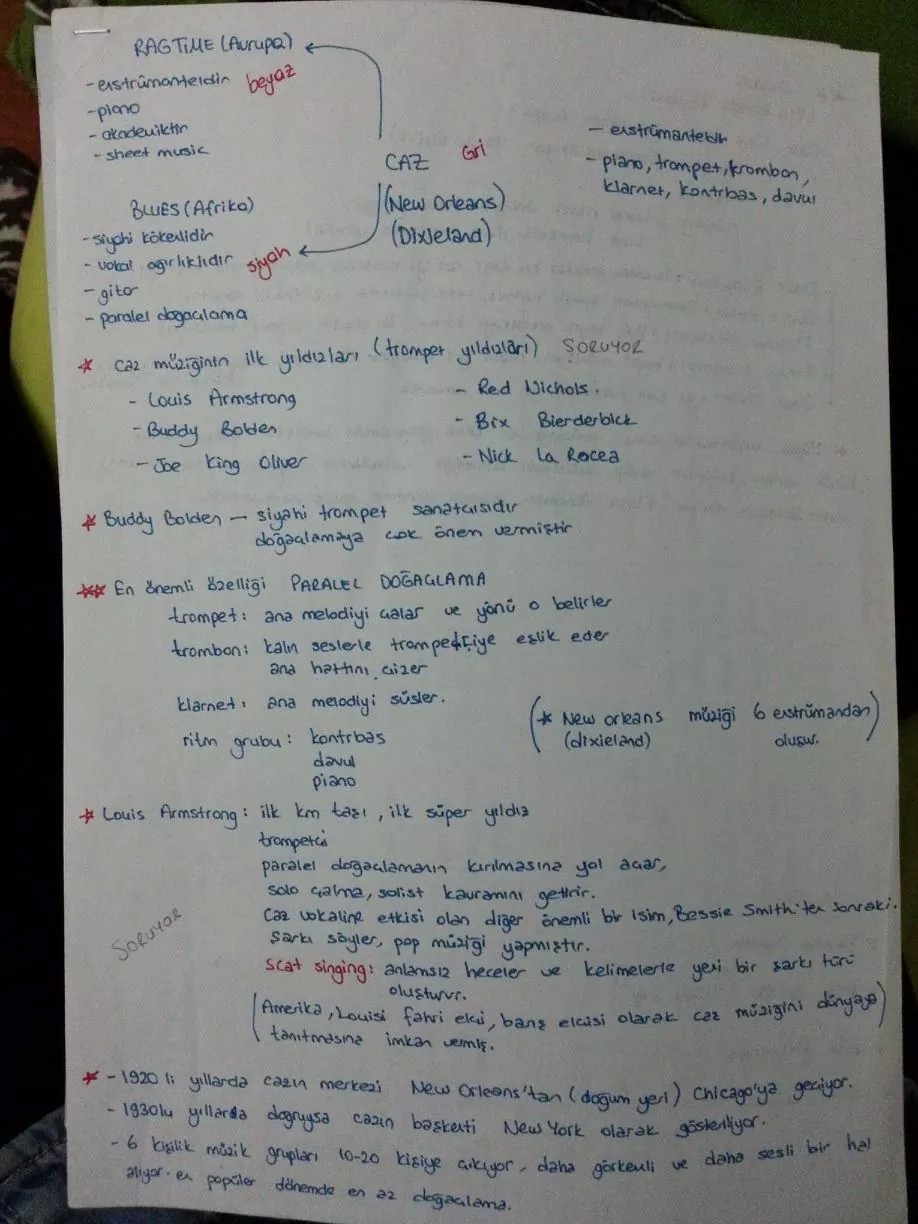 RAGTIME (Avrupa)
- enstrümanteldir beyaz
- piano
- akademiktir
- sheet music
CAZ Gri
(New Orleans)
(Dixieland)
- enstrümantebir
- piano, trompet, krombon,
klarnet, kontrbas, davul
BLUES (Afrika)
- siyahi kökenlidir
- vokal ağırlıklıdır siyah
- gitar
- paralel doğaçlama
* caz müziğinin ilk yıldızları (trompet yıldızları) SORUYOR
- Louis Armstrong
- Buddy Bolden
- Joe King Oliver
- Red Nichols.
- Bix Bierderbick
- Nick La Rocea
* Buddy Bolden - siyahi trompet sanatçısıdır
doğaçlamaya çok önem vermiştir
** En önemli özelliği PARALEL DOĞAÇLAMA
trompet: ana melodiyi çalar ve yönü o belirler
trombon: kalın seslerle trompetçiye eşlik eder
ana hattını çizer
klarnet: ana melodiyi süsler.
ritm grubu: kontrbas
davul
piano
(* New orleans müziği 6 enstrümandan
(dixieland) oluşur.)
* Louis Armstrong: ilk km taşı, ilk süper yıldız
trompetçi
paralel doğaçlamanın kırılmasına yol açar,
solo çalma, solist kavramını getirir.
Caz vokaline etkisi olan diğer önemli bir isim, Bessie Smith'ten sonraki.
Şarkı söyler, pop müziği yapmıştır.
SORUYOR
Scat singing: anlamsız heceler ve kelimelerle yeni bir şarkı türü
oluşturur.
(Amerika, Louisi fahri elçi, barış elçisi olarak caz müziğini dünyaya)
tanıtmasına imkan vermiş.
* - 1920 li yıllarda cazın merkezi New Orleans'tan (doğum yeri) Chicago'ya geçiyor.
- 1930lu yıllarda doğruysa cazın başkenti New York olarak gösteriliyor.
- 6 kişilik müzik grupları 10-20 kişiye çıkıyor, daha görkemli ve daha sesli bir hal
alıyor. en popüler dönemde en az doğaçlama.